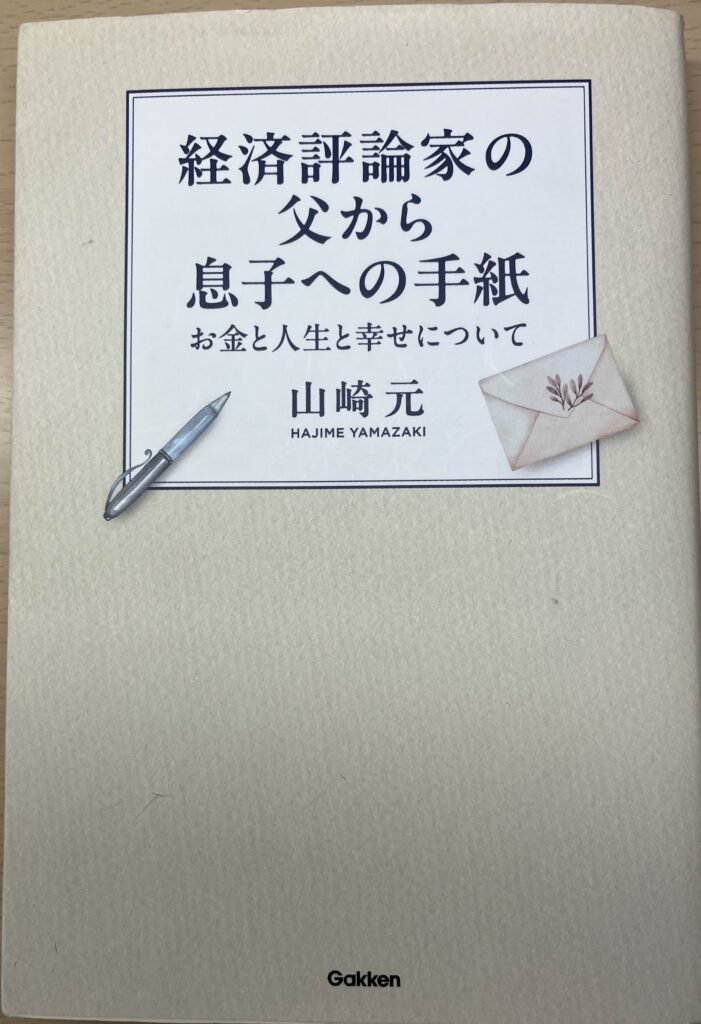 経済評論家の
父から
息子への手紙
お金と人生と幸せについて
山崎 元
HAJIME YAMAZAKI
Gakken